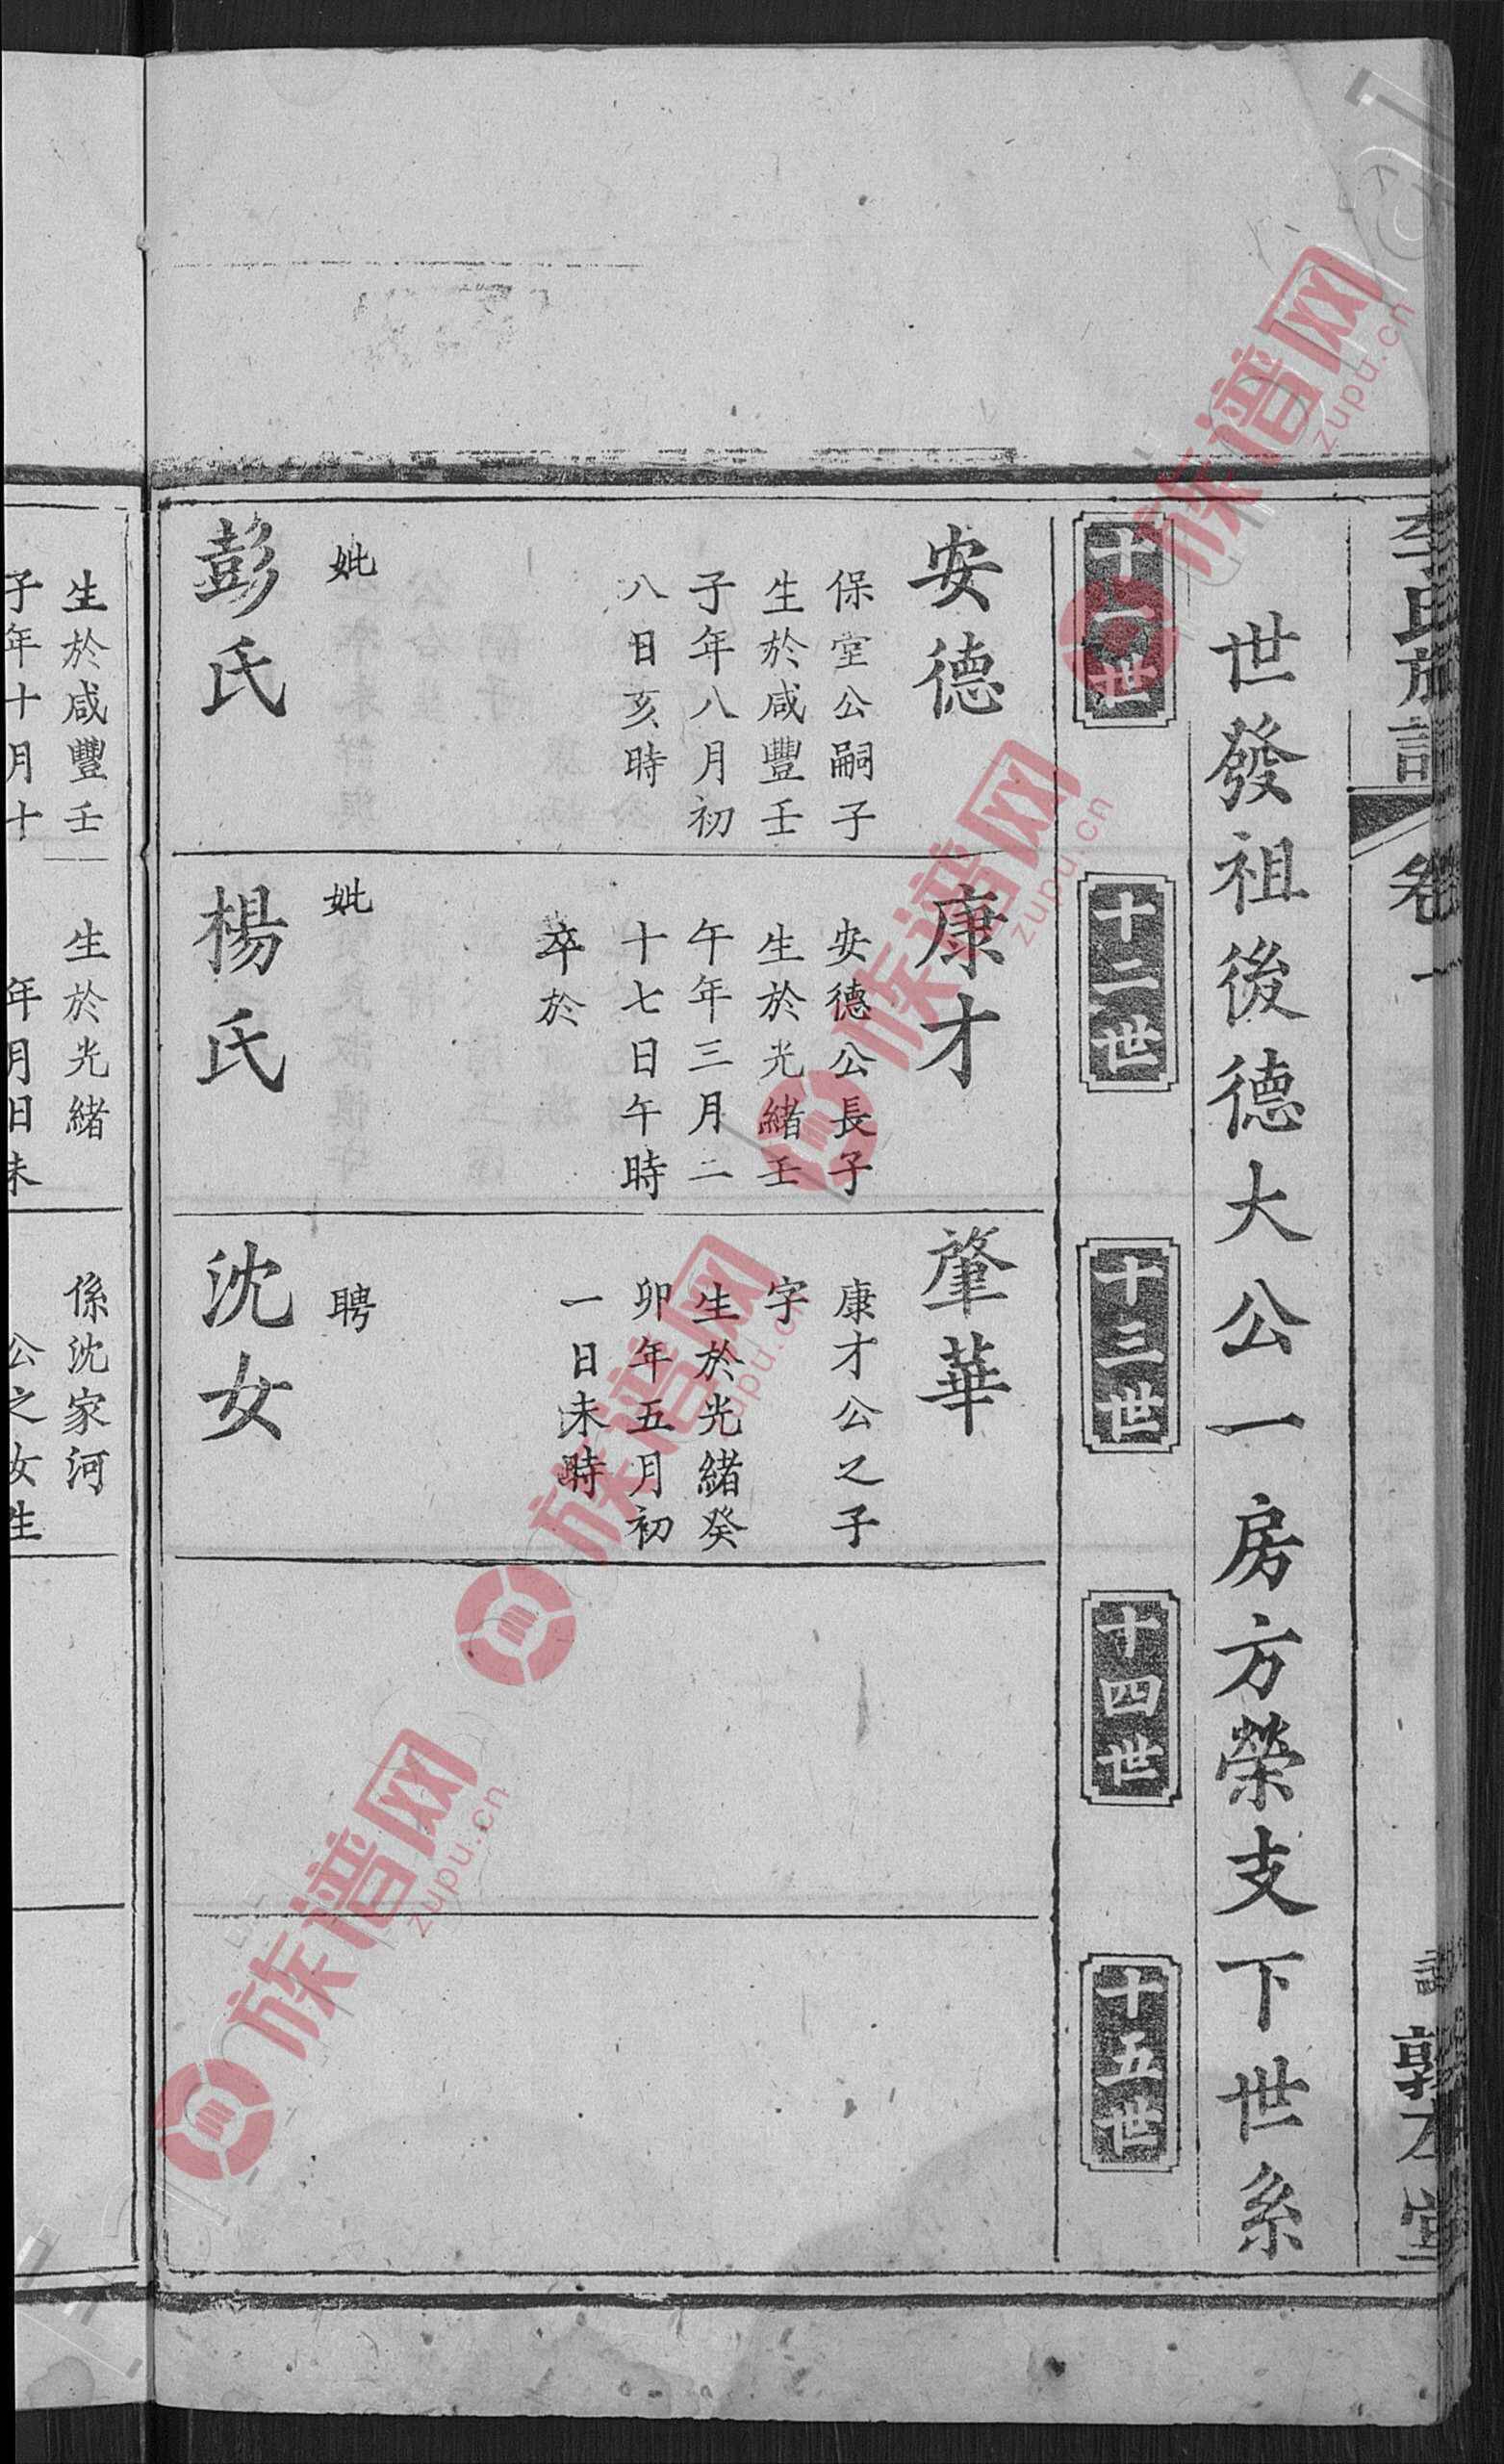 李氏族譜
卷一
敦本堂
世發祖後德大公一房方榮支下世系
十一世
十二世
十三世
十四世
十五世
安德
保堂公嗣子
生於咸豐壬
子年八月初
八日亥時
妣
彭氏
康才
安德公長子
生於光緒壬
午年三月二
十七日午時
卒於
妣
楊氏
肇華
康才公之子
字
生於光緒癸
卯年五月初
一日未時
聘
沈女
生於咸豐壬
子年十月十
生於光緒
年月日未
係沈家河
公之女生
族谱网
zupu.cn
族谱网
zupu.cn
族谱网
zupu.cn
族谱网
zupu.cn